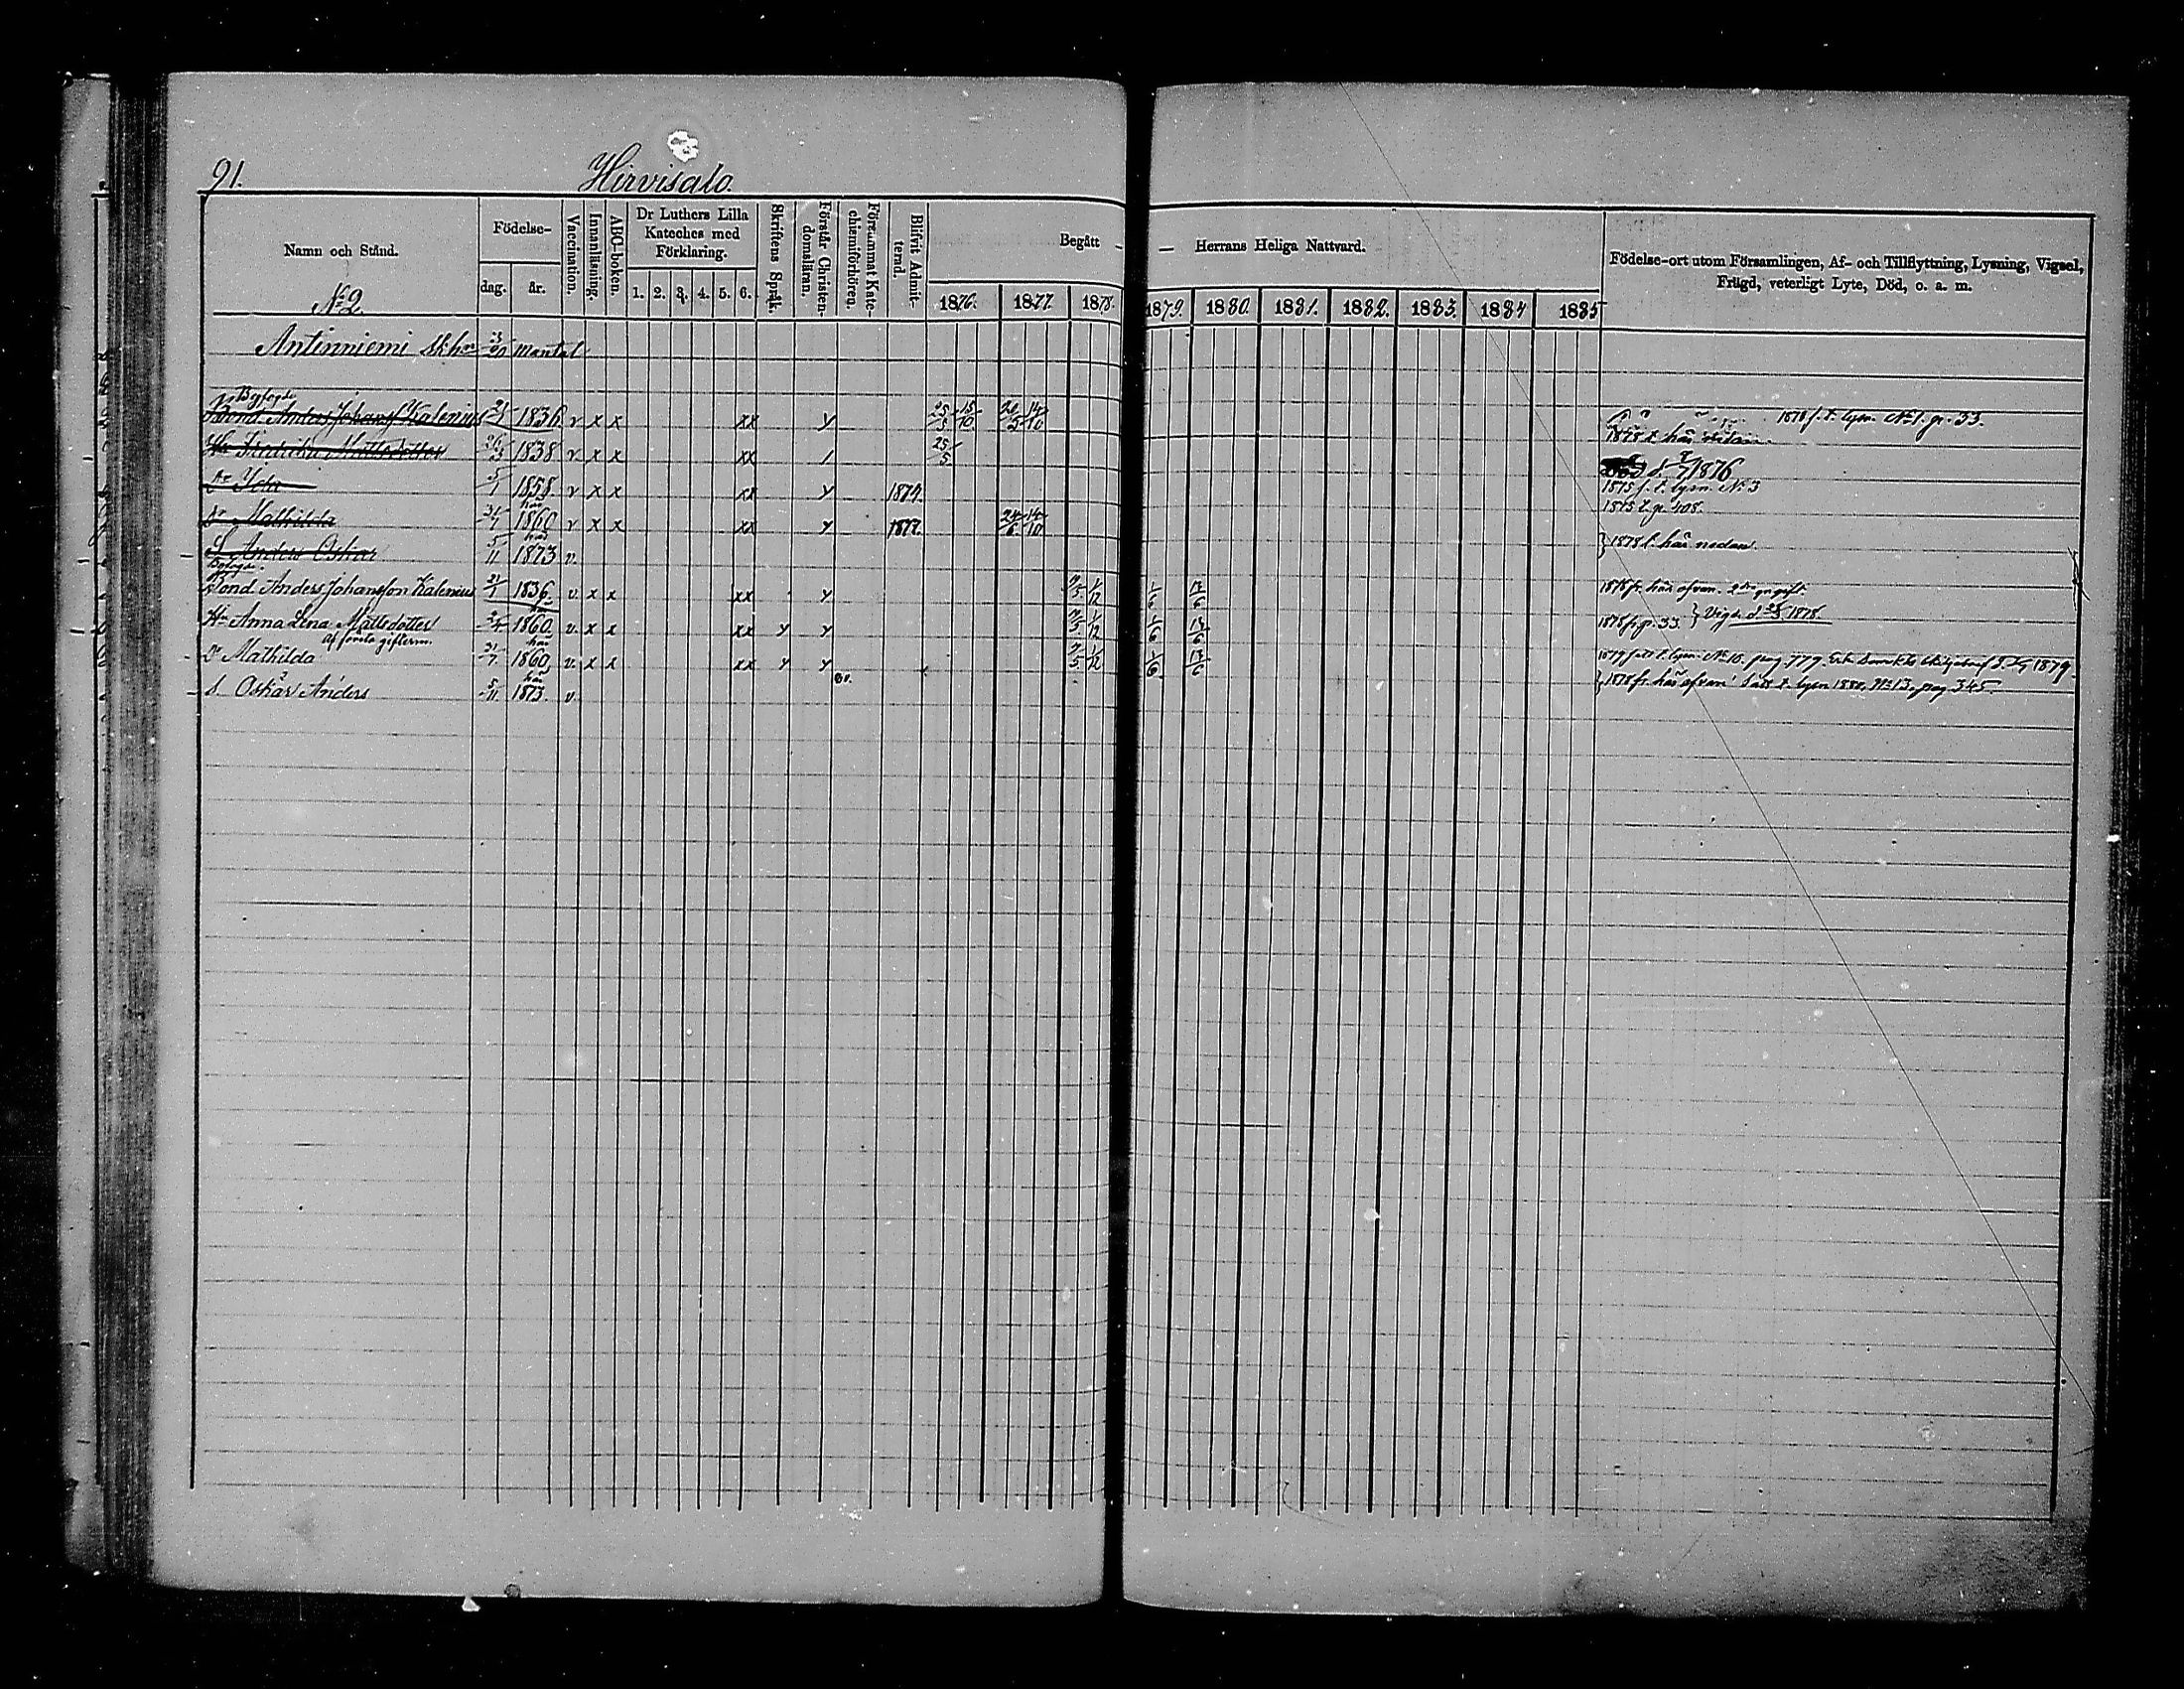 91.
Hirvisalo.
Namn och Stånd.
Födelse-
dag.
år.
Vaccination.
Innanläsning.
ABC-boken.
Dr Luthers Lilla
Kateches med
Förklaring.
1. 2. 3. 4. 5. 6.
Skriftens Språk.
Förstår Christen-
domsläran.
Försummat Kate-
chismiförhören.
Blifvit Admit-
terad.
Begått — — Herrans Heliga Nattvard.
1876. 1877. 1878. 1879. 1880. 1881. 1882. 1883. 1884 1885
Födelse-ort utom Församlingen, Af- och Tillflyttning, Lysning, Vigsel,
Frägd, veterligt Lyte, Död, o. a. m.
№ 2.
Antinniemi Skhm mantal
Byfogde
Bond. Anders Johansf Kalenius 1836 v x x xx y 25/5 15/10 14/10 1878 f. t. lysn. № 1. pr. 33.
1878 t. här nedan.
Hu Fredrika Mattsdotter 26/3 1838 v x x xx 1 25/5
1876
Dr Ida 5/1 1858 v x x xx y 1874. 1875 f. t. lysn. № 3
1875 t. pr. 408.
här
Dr Mathilda 21/7 1860 v x x xx y 1877. 24/6 14/10
här
S. Anders Oskar 5/11 1873 v. } 1878 t. här nedan.
Byfogde.
Bond. Anders Johansson Kalenius 21/1 1836. v. x x xx y 1/12 1/6 13/6 1878 fr. här ofvan. 2dra gn gift.
Hu Anna Lena Mattsdotter 1860. v. x x xx y y 1/12 1/6 13/6 1878 fr. pr. 33. } Vigde d. 1878.
af förra gifterm. här
Dr Mathilda 21/7 1860, v. x x xx y y 1/12 1/6 13/6 1879 t. lysn. № 10. pag. 779. 1879.
här
S. Oskar Anders 5/11. 1873. v } 1878 fr. här ofvan. t. lysn 1880, № 13. pag 345.